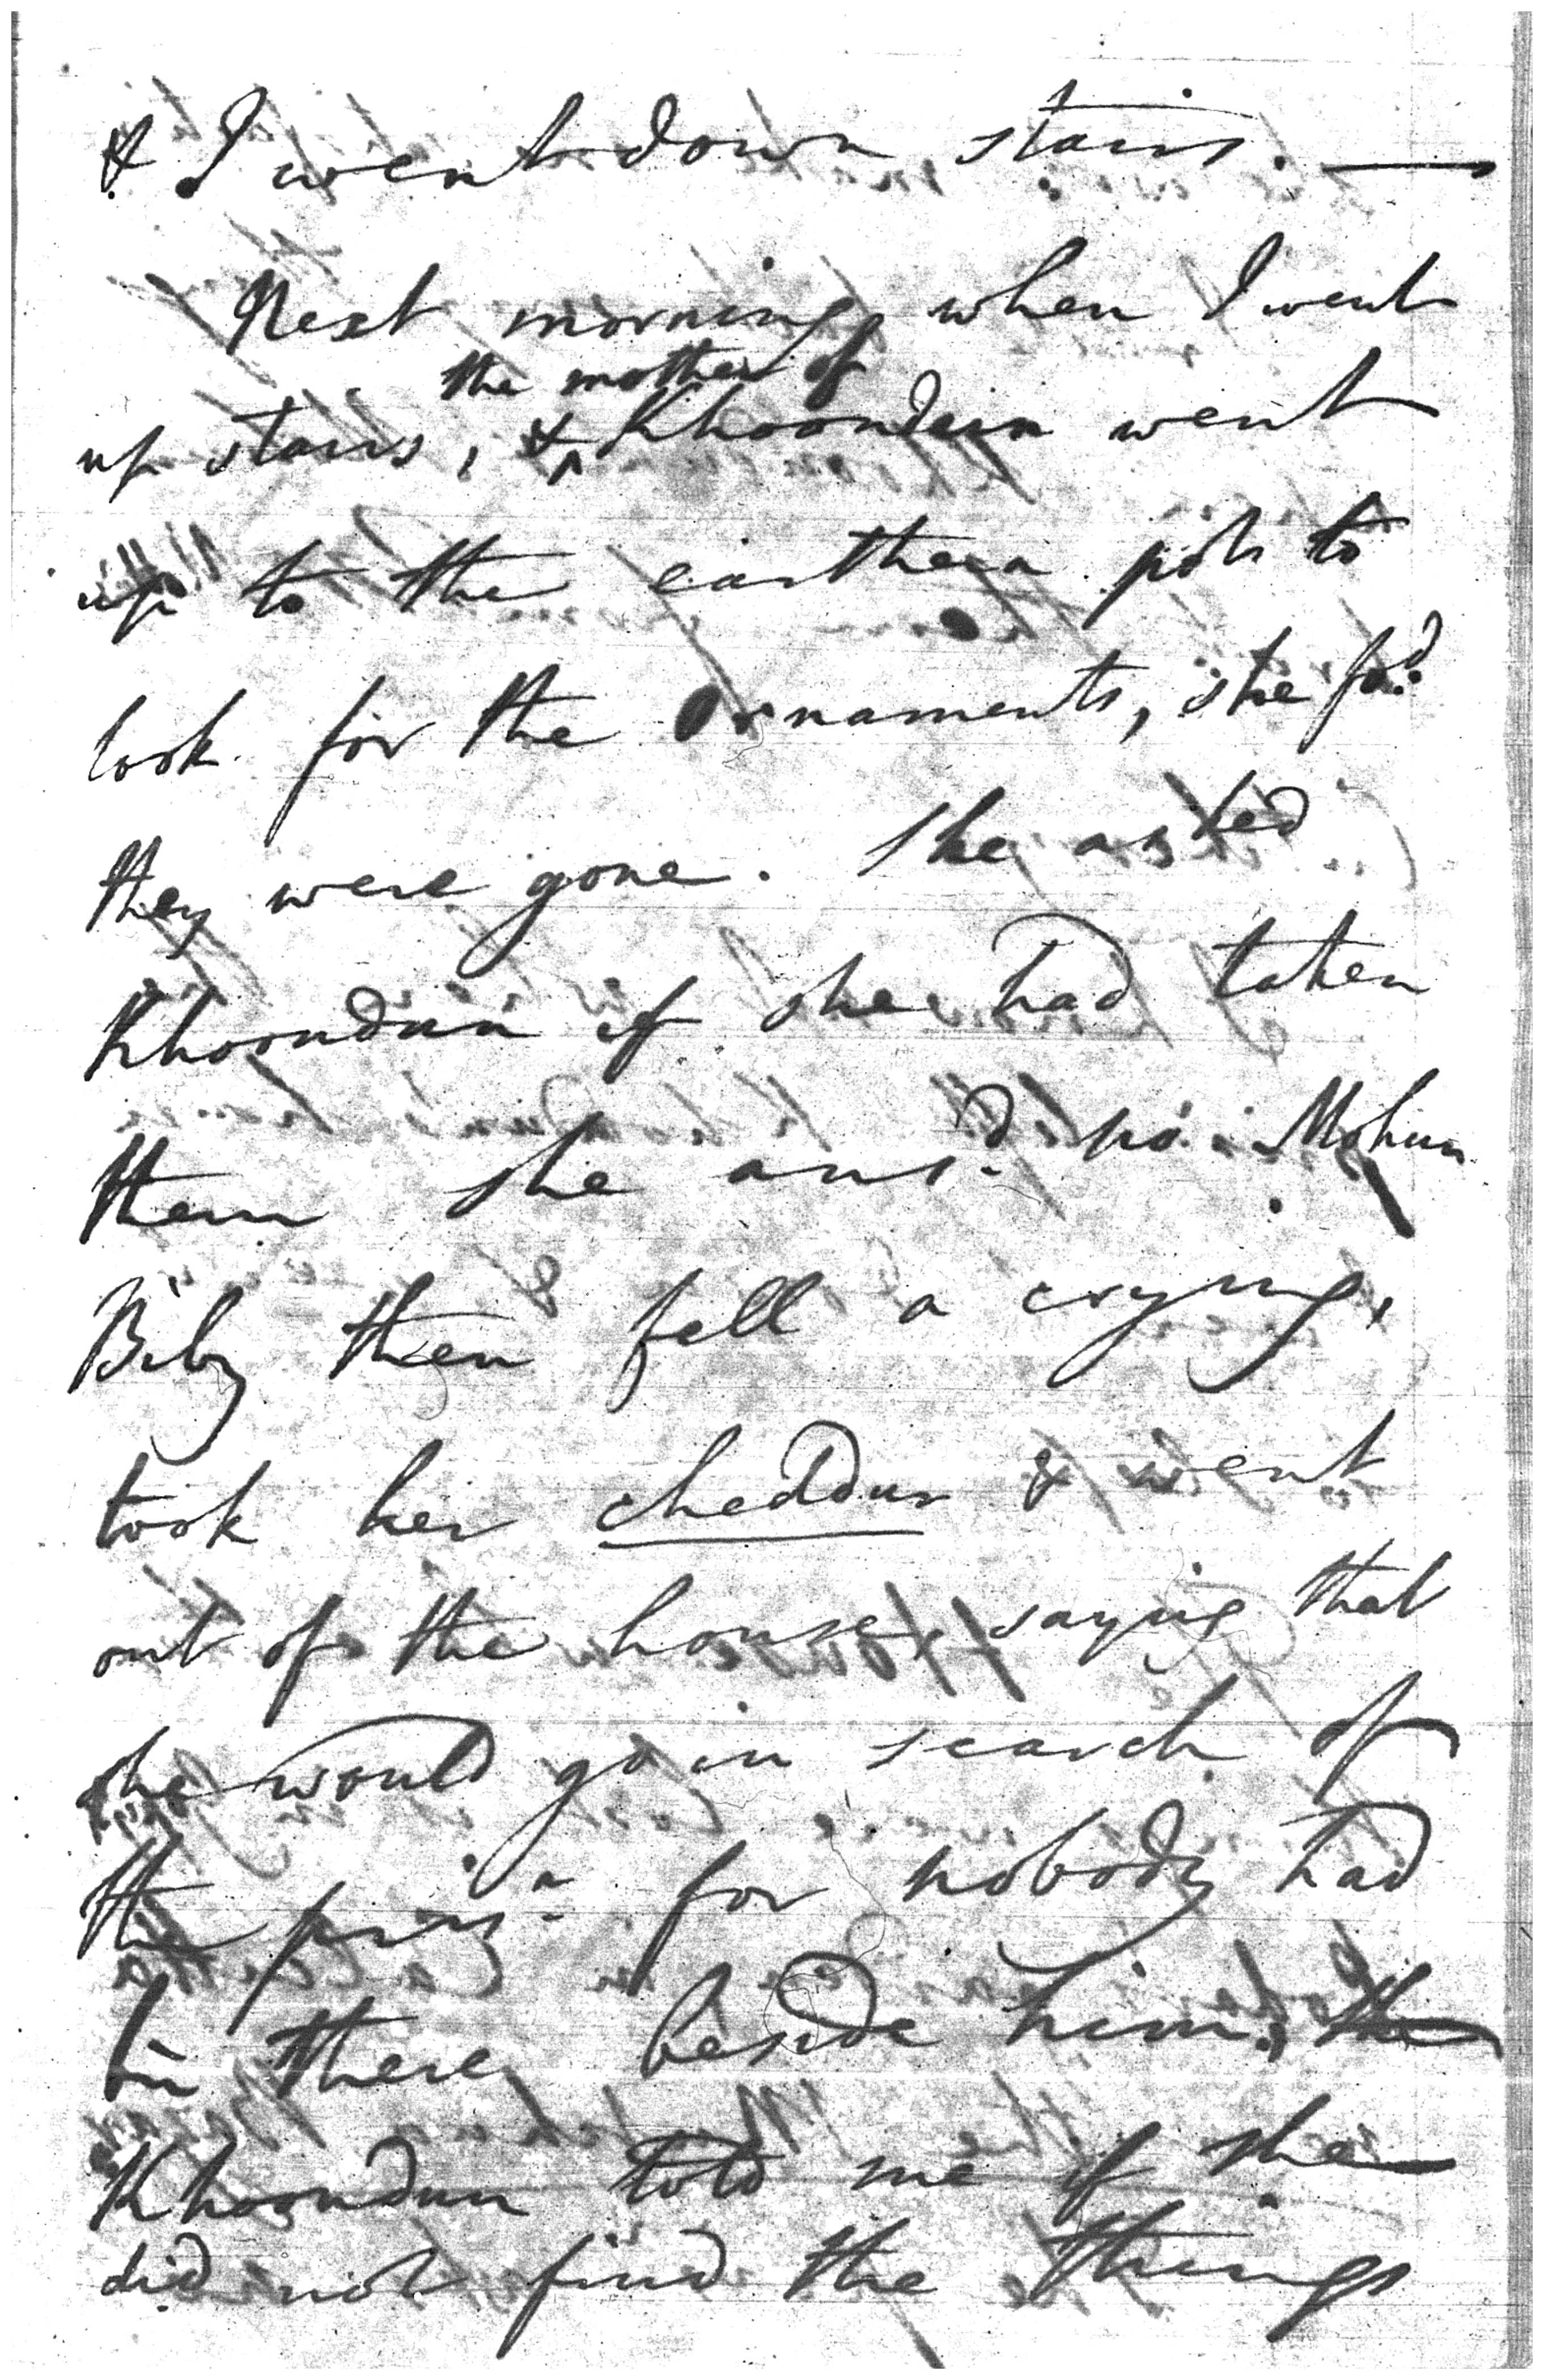 & I went down stairs. —
Next morning, when I went
the mother of
up stairs, & ^ Khoondun went
up to the earthen pots to
look for the Ornaments, she fo:d
they were gone. She asked
Khoondun if she had taken
them she ans:d no. Mohun
Biby then fell a crying,
took her cheddur & went
out of the house, saying that
she would go in search of
the pris:r for nobody had
bin there beside him,
Khoondun told me if she
did not find the things